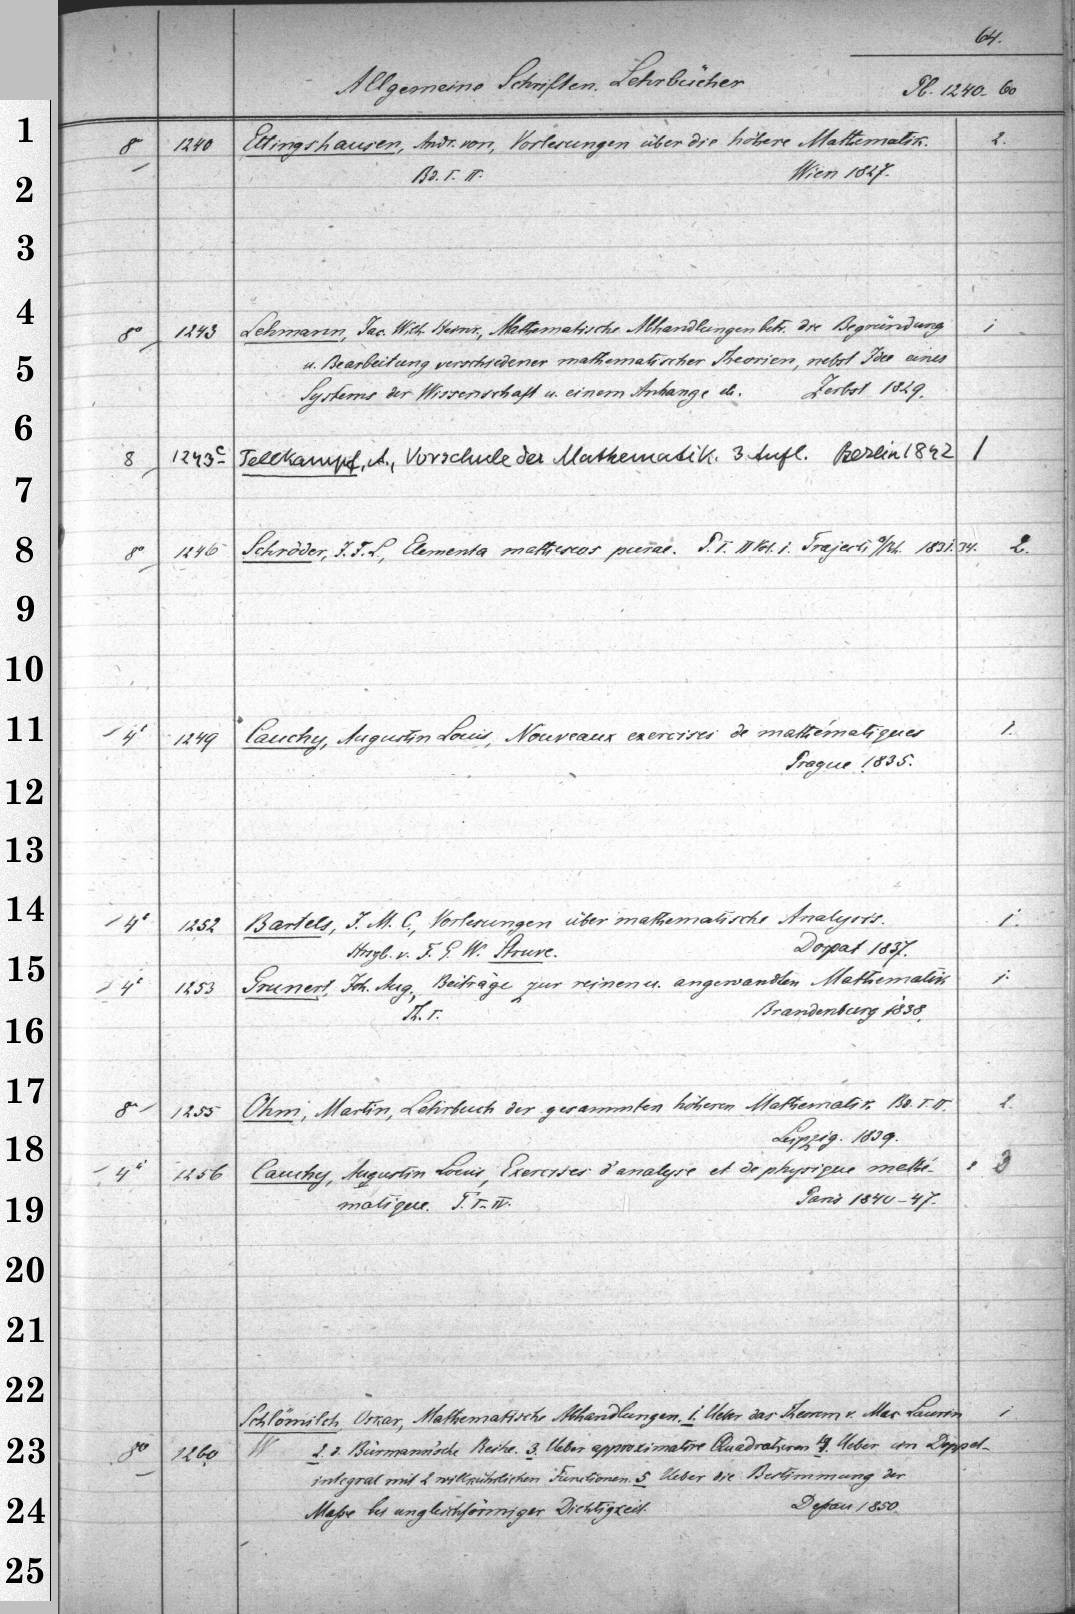 64.
Allgemeine Schriften. Lehrbücher Pl. 1240-60
1
8º 1240 Ettingshausen, Andr. von, Vorlesungen über die höhere Mathematik. 2.
Bd. I. II. Wien 1827.
2
3
4
8º 1243 Lehmann, Jac. Wilh. Heinr., Mathematische Abhandlungen betr. die Begründung 1
u. Bearbeitung verschiedener mathematischer Theorien, nebst Idee eines
5
Systems der Wissenschaft u. einem Anhange etc. Zerbst 1829.
6
8 1243c Tellkampf, A., Vorschule der Mathematik. 3 Aufl. Berlin 1842 1
7
8
8º 1246 Schröder, J. F. L., Elementa matheseos purae. P. I. II Vol. i. Trajecti a/Rh. 1831.34. 2.
9
10
11
4º 1249 Cauchy, Augustin Louis, Nouveaux exercises de mathématiques 1.
Prague 1835.
12
13
14
4º 1252 Bartels, J. M. C., Vorlesungen über mathematische Analysis. 1.
Hrsgb. v. F. G. W. Struve. Dorpat 1837.
15
4º 1253 Grunert, Joh. Aug., Beiträge zur reinen u. angewandten Mathematik 1.
Th. I. Brandenburg 1838.
16
17
8º 1255 Ohm, Martin, Lehrbuch der gesammten höheren Mathematik Bd. I. II. 2.
Leipzig. 1839.
18
4º 1256 Cauchy, Augustin Louis, Exercises d'analyse et de physique mathé- 3
matique. T. I-IV. Paris 1840-47.
19
20
21
22
Schlömilch, Oskar, Mathematische Abhandlungen. 1. Ueber das Theorem v. Mac Laurin 1
23
8º 1260 W 2. d. Bürmann'sche Reihe. 3. Ueber approximative Quadraturen 4. Ueber ein Doppel-
integral mit 2 willkührlichen Functionen. 5 Ueber die Bestimmung der
24
Maße bei ungleichförmiger Dichtigkeit. Deßau 1850.
25